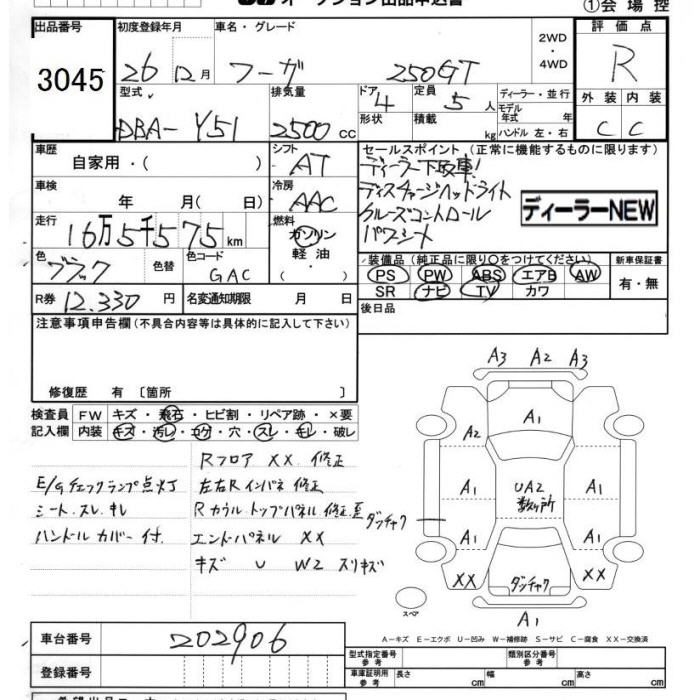 オークション出品申込書
①会場控
出品番号
3045
初度登録年月
26年12月
車名・グレード
フーガ 250GT
2WD
・
4WD
評価点
R
外装 内装
C C
型式
DBA- Y51
排気量
2500 cc
ドア 4
形状
定員 5人
積載 kg
ディーラー・並行
モデル年式 年
ハンドル 左・右
車歴
自家用・( )
シフト
AT
セールスポイント (正常に機能するものに限ります)
ディーラー下取車!
ディスチャージヘッドライト
クルーズコントロール
パワーシート
ディーラーNEW
車検
年 月(日)
冷房
AAC
走行
16万5千575km
燃料
ガソリン
軽油・
( )
色
ブラック
色替
色コード
GAC
装備品 (純正品に限り○をつけてください)
PS PW ABS エアB AW
SR ナビ TV カワ
新車保証書
有・無
R券 12,330円
名変通知期限 月 日
後日品
注意事項申告欄(不具合内容等は具体的に記入して下さい)
修復歴 有〔箇所 〕
検査員記入欄
FW キズ・飛石・ヒビ割・リペア跡・×要
内装 キズ・汚レ・コゲ・穴・スレ・キレ・破レ
E/Gチェックランプ点灯
シート.スレ.キレ
ハンドルカバー付.
Rフロア XX.修正
左右Rインパネ 修正
Rカウルトップパネル 修正
エンドパネル XX
キズ U W2 スリキズ
A3 A2 A3
A1
A2
A1 UA2 数ヶ所 A1
ダッチャク
A1 A1
XX ダッチャク XX
スペア
A1
A-キズ E-エクボ U-凹み W-補修跡 S-サビ C-腐食 XX-交換済
車台番号 202906
登録番号
型式指定番号 参考
類別区分番号 参考
車庫証明用 参考 長さ cm 幅 cm 高さ cm